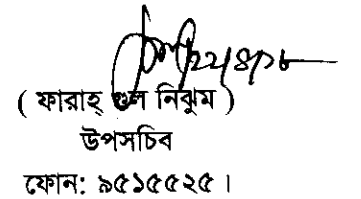 ২২/৪/১৮
( ফারাহ্ গুল নিঝুম )
উপসচিব
ফোন: ৯৫১৫৫২৫ ।